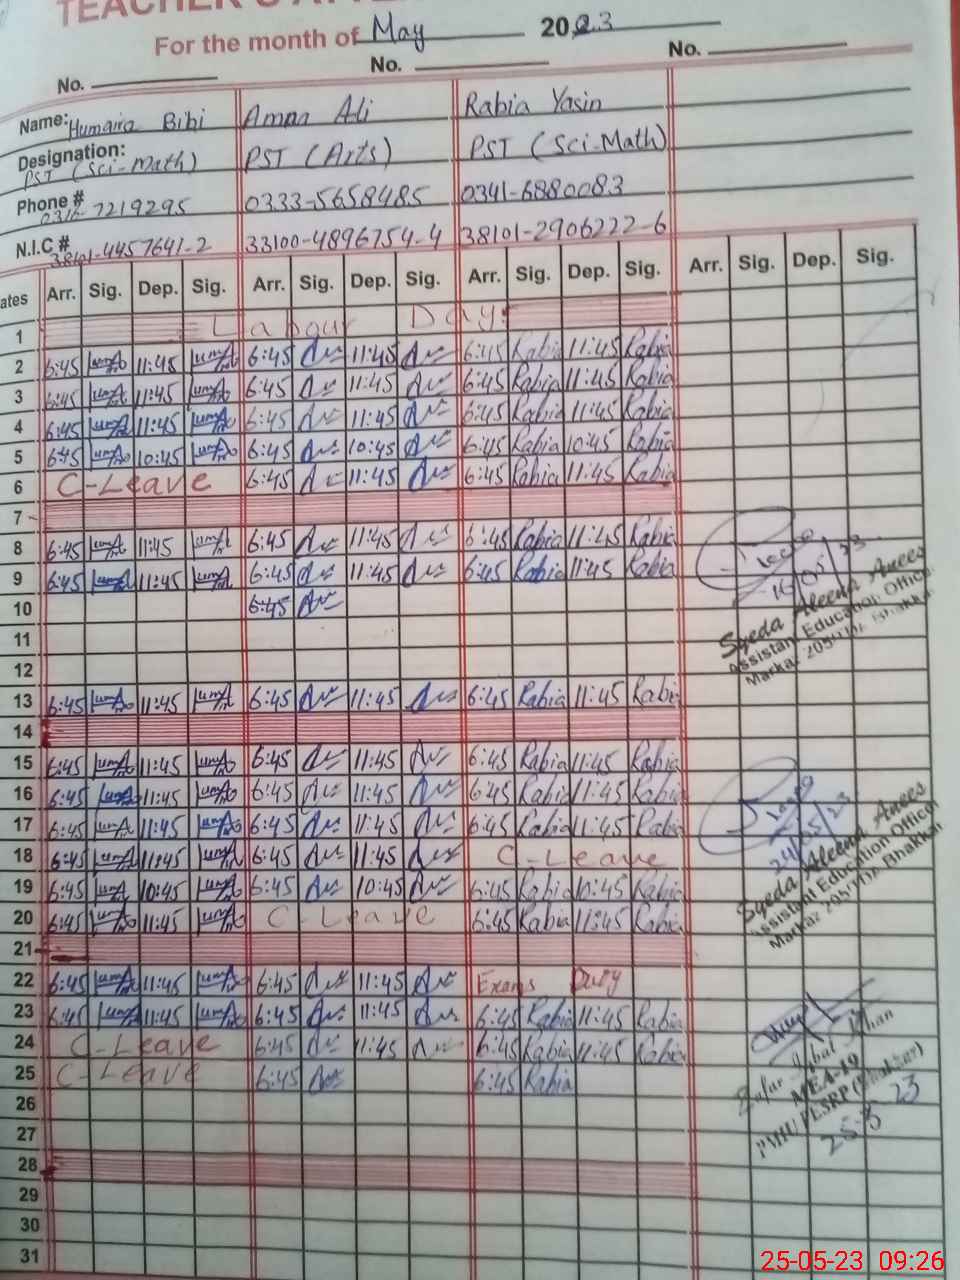 TEACHER'S
For the month of May 2023
No. No. No.
Name: Humaira Bibi Amna Ali Rabia Yasin
Designation: PST (Sci-Math) PST (Arts) PST (Sci-Math)
Phone # 0316-7219295 0333-5658485 0341-6880083
N.I.C # 38101-4457641-2 33100-4896754-4 38101-2906222-6
ates Arr. Sig. Dep. Sig. Arr. Sig. Dep. Sig. Arr. Sig. Dep. Sig. Arr. Sig. Dep. Sig.
1 Labour Day
2 6:45 11:45 6:45 11:45 6:45 Rabia 11:45 Rabia
3 6:45 11:45 6:45 11:45 6:45 Rabia 11:45 Rabia
4 6:45 11:45 6:45 11:45 6:45 Rabia 11:45 Rabia
5 6:45 10:45 6:45 10:45 6:45 Rabia 10:45 Rabia
6 C-Leave 6:45 11:45 6:45 Rabia 11:45 Rabia
7
8 6:45 11:45 6:45 11:45 6:45 Rabia 11:45 Rabia
9 6:45 11:45 6:45 11:45 6:45 Rabia 11:45 Rabia
10 6:45
11
12
13 6:45 11:45 6:45 11:45 6:45 Rabia 11:45 Rabia
14
15 6:45 11:45 6:45 11:45 6:45 Rabia 11:45 Rabia
16 6:45 11:45 6:45 11:45 6:45 Rabia 11:45 Rabia
17 6:45 11:45 6:45 11:45 6:45 Rabia 11:45 Rabia
18 6:45 11:45 6:45 11:45 C-Leave
19 6:45 10:45 6:45 10:45 6:45 Rabia 10:45 Rabia
20 6:45 11:45 C-Leave 6:45 Rabia 11:45 Rabia
21
22 6:45 11:45 6:45 11:45 Exams Duty
23 6:45 11:45 6:45 11:45 6:45 Rabia 11:45 Rabia
24 C-Leave 6:45 11:45 6:45 Rabia 11:45 Rabia
25 C-Leave 6:45 6:45 Rabia
26
27
28
29
30
31
16/05/23
Syeda Aleena Anees
Assistant Education Officer
Markaz 205/TDA Bhakkar
24/05/23
Syeda Aleena Anees
Assistant Education Officer
Markaz 205/TDA Bhakkar
Zafar Iqbal Khan
MEA-19
PMIU PESRP (Bhakkar)
25-5 23
25-05-23 09:26